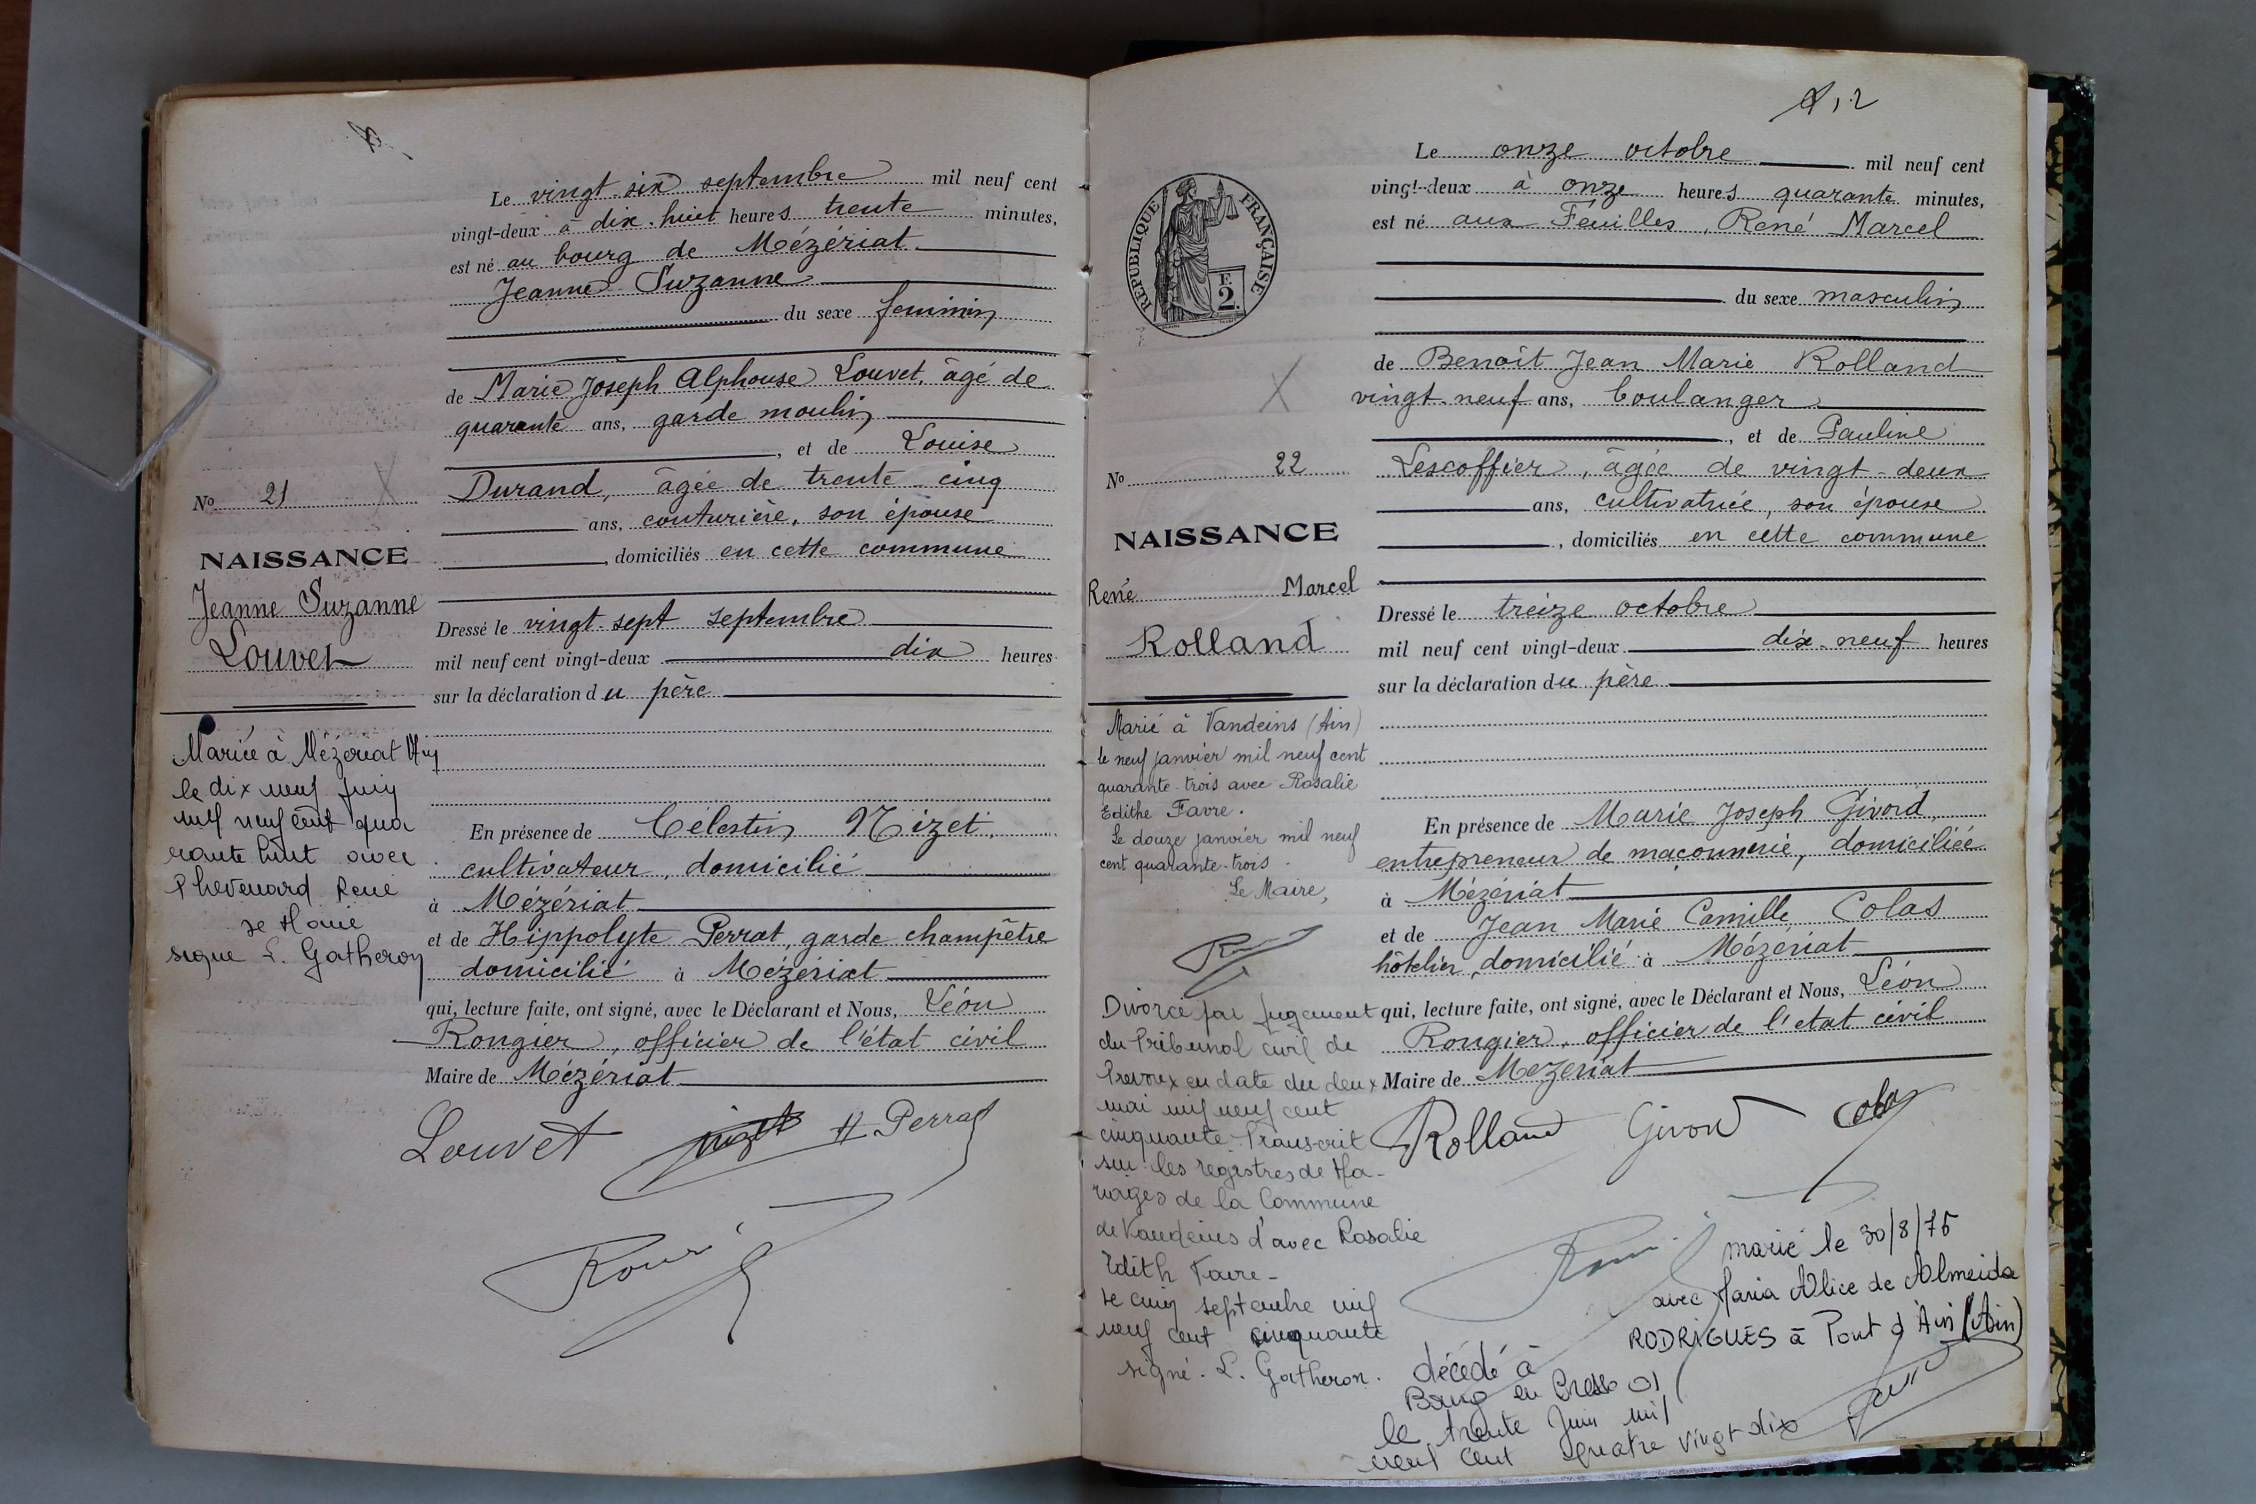 Le vingt-six septembre mil neuf cent
vingt-deux à dix-huit heures trente minutes,
est né au bourg de Mézériat
Jeanne Suzanne
du sexe feminin
de Marie Joseph Alphonse Louvet, âgé de
quarante ans, garde moulin
, et de Louise
Durand, âgée de trente cinq
ans, couturière, son épouse
, domiciliés en cette commune
No 21
NAISSANCE
Jeanne Suzanne
Louvet
Dressé le vingt-sept septembre
mil neuf cent vingt-deux dix heures
sur la déclaration du père
Mariée à Mézériat Ain
le dix neuf juin
mil neuf cent qua
rante huit avec
Thevenard René
Le Maire
signé L. Gatheron
En présence de Célestin Nizet,
cultivateur, domicilié
à Mézériat
et de Hippolyte Perrat, garde champêtre
domicilié à Mézériat
qui, lecture faite, ont signé, avec le Déclarant et Nous, Léon
Rongier, officier de l'état civil
Maire de Mézériat
Louvet Nizet H. Perrat
12
REPUBLIQUE FRANÇAISE
F.
2
Le onze octobre mil neuf cent
vingt-deux à onze heures quarante minutes,
est né aux Feuilles, René Marcel
du sexe masculin
de Benoît Jean Marie Rolland
vingt-neuf ans, boulanger
, et de Pauline
Lescoffier, âgée de vingt-deux
ans, cultivatrice, son épouse
, domiciliés en cette commune
No 22
NAISSANCE
René Marcel
Rolland
Dressé le treize octobre
mil neuf cent vingt-deux dix-neuf heures
sur la déclaration du père
Marié à Vandeins (Ain)
le neuf janvier mil neuf cent
quarante-trois avec Rosalie
Edithe Favre.
Le douze janvier mil neuf
cent quarante-trois.
Le Maire,
Divorcé par jugement
du Tribunal civil de
Trevoux en date du deux
mai mil neuf cent
cinquante. Transcrit
sur les registres de Ma-
riages de la Commune
de Vandeins d'avec Rosalie
Edith Favre-
Le cinq septembre mil
neuf cent cinquante
signé. L. Gatheron.
En présence de Marie Joseph Givord,
entrepreneur de maçonnerie, domiciliée
à Mézériat
et de Jean Marie Camille Colas
hôtelier, domicilié à Mézériat
qui, lecture faite, ont signé, avec le Déclarant et Nous, Léon
Rongier, officier de l'etat civil
Maire de Mezériat
Rolland Givord Colas
marié le 30/8/75
avec Maria Alice de Almeida
RODRIGUES à Pont d'Ain (Ain)
décédé à
Bourg en Bresse 01
le trente Juin mil
neuf cent quatre vingt dix